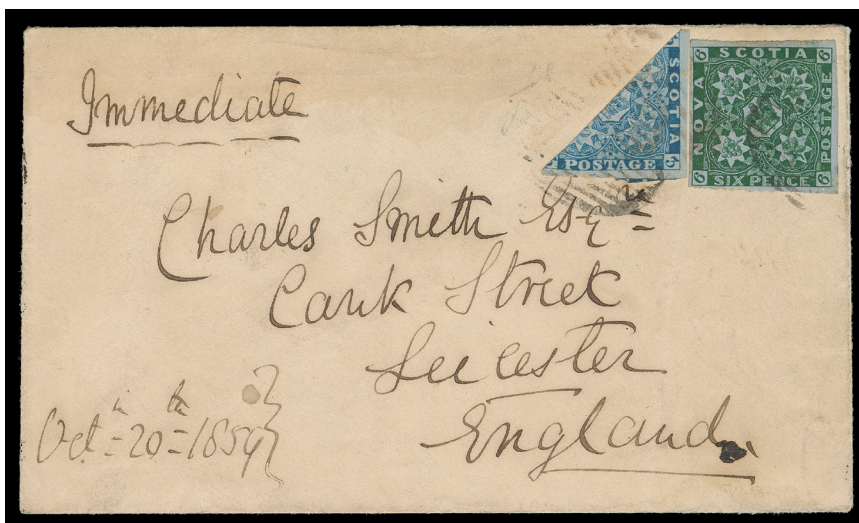 Immediate
SCOTIA
POSTAGE
SCOTIA
NOVA
POSTAGE
SIX PENCE
6 6 6 6
Charles Smith Esq
Cank Street
Leicester
England
Octr 20th 1859